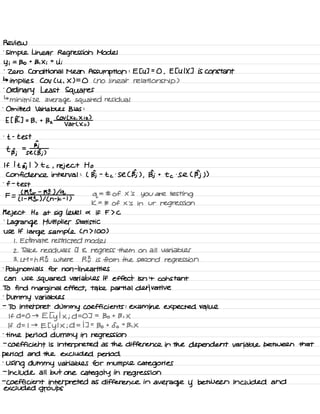 Review
· Simple Linear Regression Model
yᵢ = β₀ + β₁xᵢ + uᵢ
· Zero Conditional Mean Assumption: E[u]=0, E[u|X] is constant
↳ implies Cov(u,X)=0 (no linear relationship)
· Ordinary Least Squares
↳ minimize average squared residual
· Omitted Variables Bias:
E[β̂₁] = β₁ + β₂
· t-test
t_β̂ⱼ = β̂ⱼ / se(β̂ⱼ)
If |t_β̂ⱼ| > tc, reject H₀
Confidence interval: (β̂ⱼ - tc · se(β̂ⱼ), β̂ⱼ + tc · se(β̂ⱼ))
· f-test
F = (R²ᵤᵣ - R²ᵣ)/q / (1-R²ᵤᵣ)/(n-k-1)
q = # of x's you are testing
k = # of x's in ur regression
Reject H₀ at sig level α if F > c
· Lagrange Multiplier Statistic
use if large sample (n>100)
1. Estimate restricted model
2. Take residuals ũ & regress them on all variables
3. LM = nR²ᵤ where R²ᵤ is from the second regression
· Polynomials for non-linearities
can use squared variables if effect isn't constant
To find marginal effect, take partial derivative
· Dummy variables
- To interpret dummy coefficients: examine expected value
If d=0 → E[y|x,d=0] = β₀ + β₁x
If d=1 → E[y|x,d=1] = β₀ + δ₀ + β₁x
· time period dummy in regression
- coefficient is interpreted as the difference in the dependent variable between that
period and the excluded period
· Using dummy variables for multiple categories
- Include all but one category in regression
- coefficient interpreted as difference in average y between included and
excluded groups